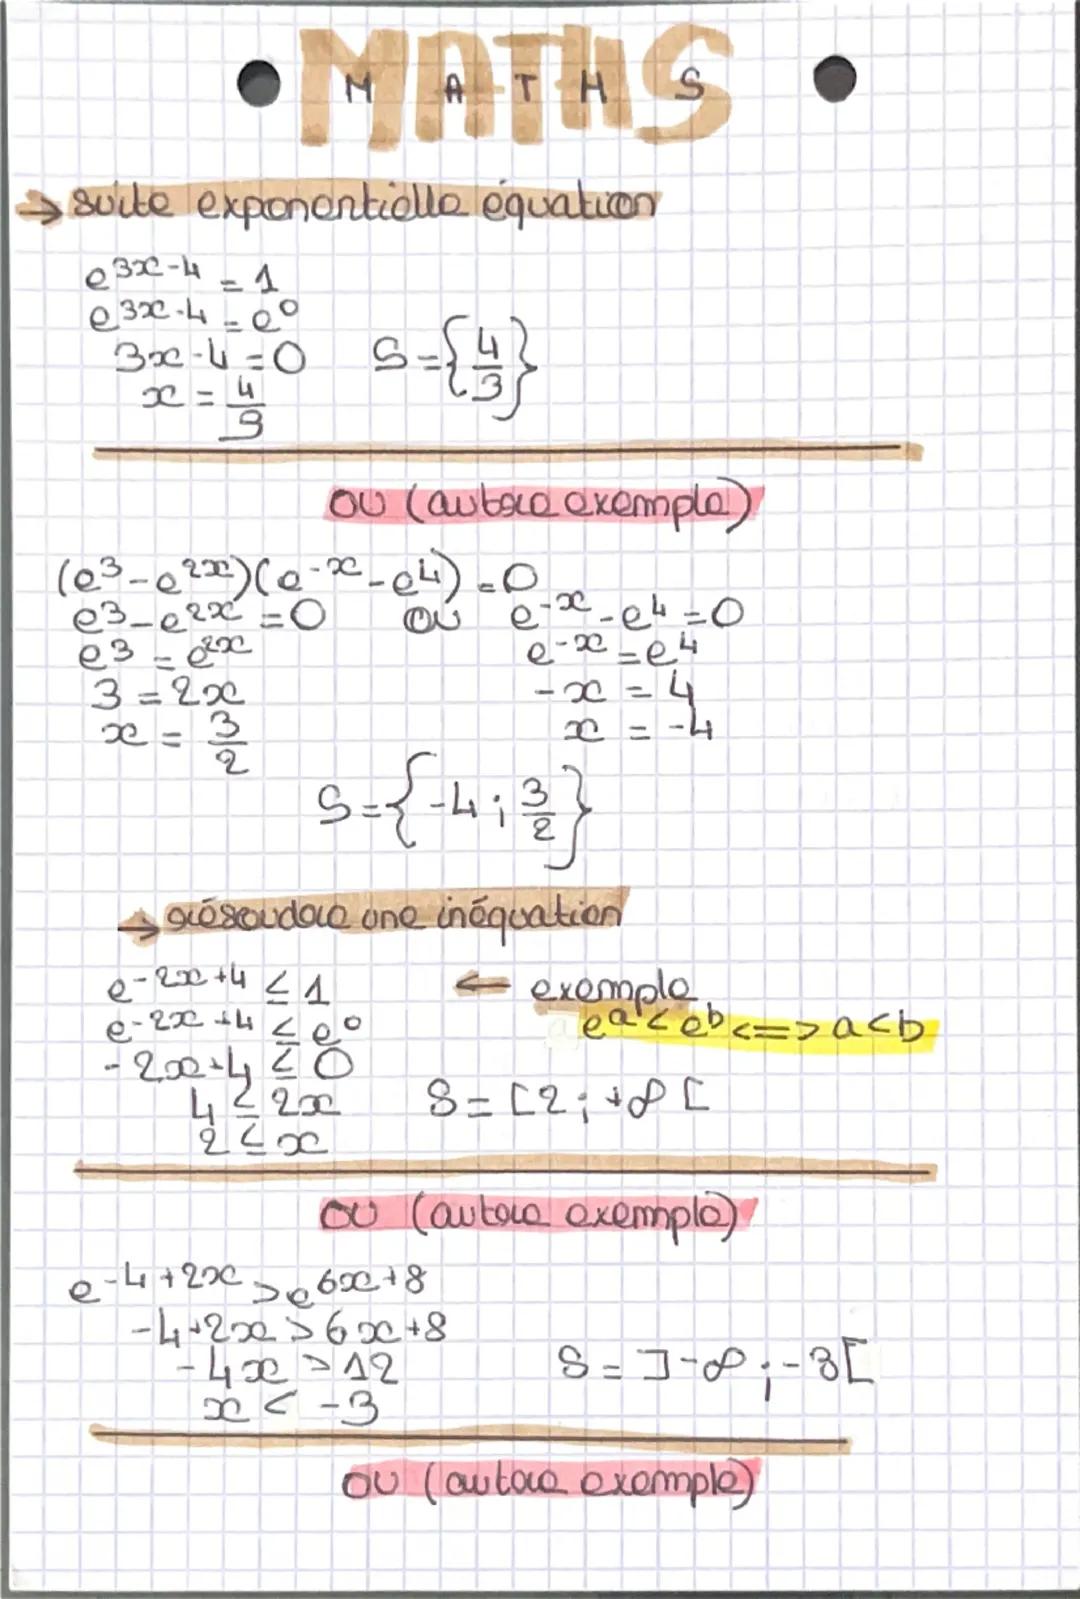 MATHS
M A T H S
→ suite exponentielle équation
e^{3x-4} = 1
e^{3x-4} = e^0
3x-4 = 0 S = {4/3}
x = 4/3
ou (autre exemple)
(e^3 - e^{2x})(e^{-x} - e^4) = 0
e^3 - e^{2x} = 0 ou e^{-x} - e^4 = 0
e^3 = e^{2x} e^{-x} = e^4
3 = 2x -x = 4
x = 3/2 x = -4
S = {-4 ; 3/2}
→ résoudre une inéquation
e^{-2x+4} ≤ 1 ← exemple
e^{-2x+4} ≤ e^0 e^a < e^b <=> a < b
-2x+4 ≤ 0
4 ≤ 2x S = [2 ; +∞[
2 ≤ x
ou (autre exemple)
e^{-4+2x} > e^{6x+8}
-4+2x > 6x+8
-4x > 12 S = ]-∞ ; -3[
x < -3
ou (autre exemple)